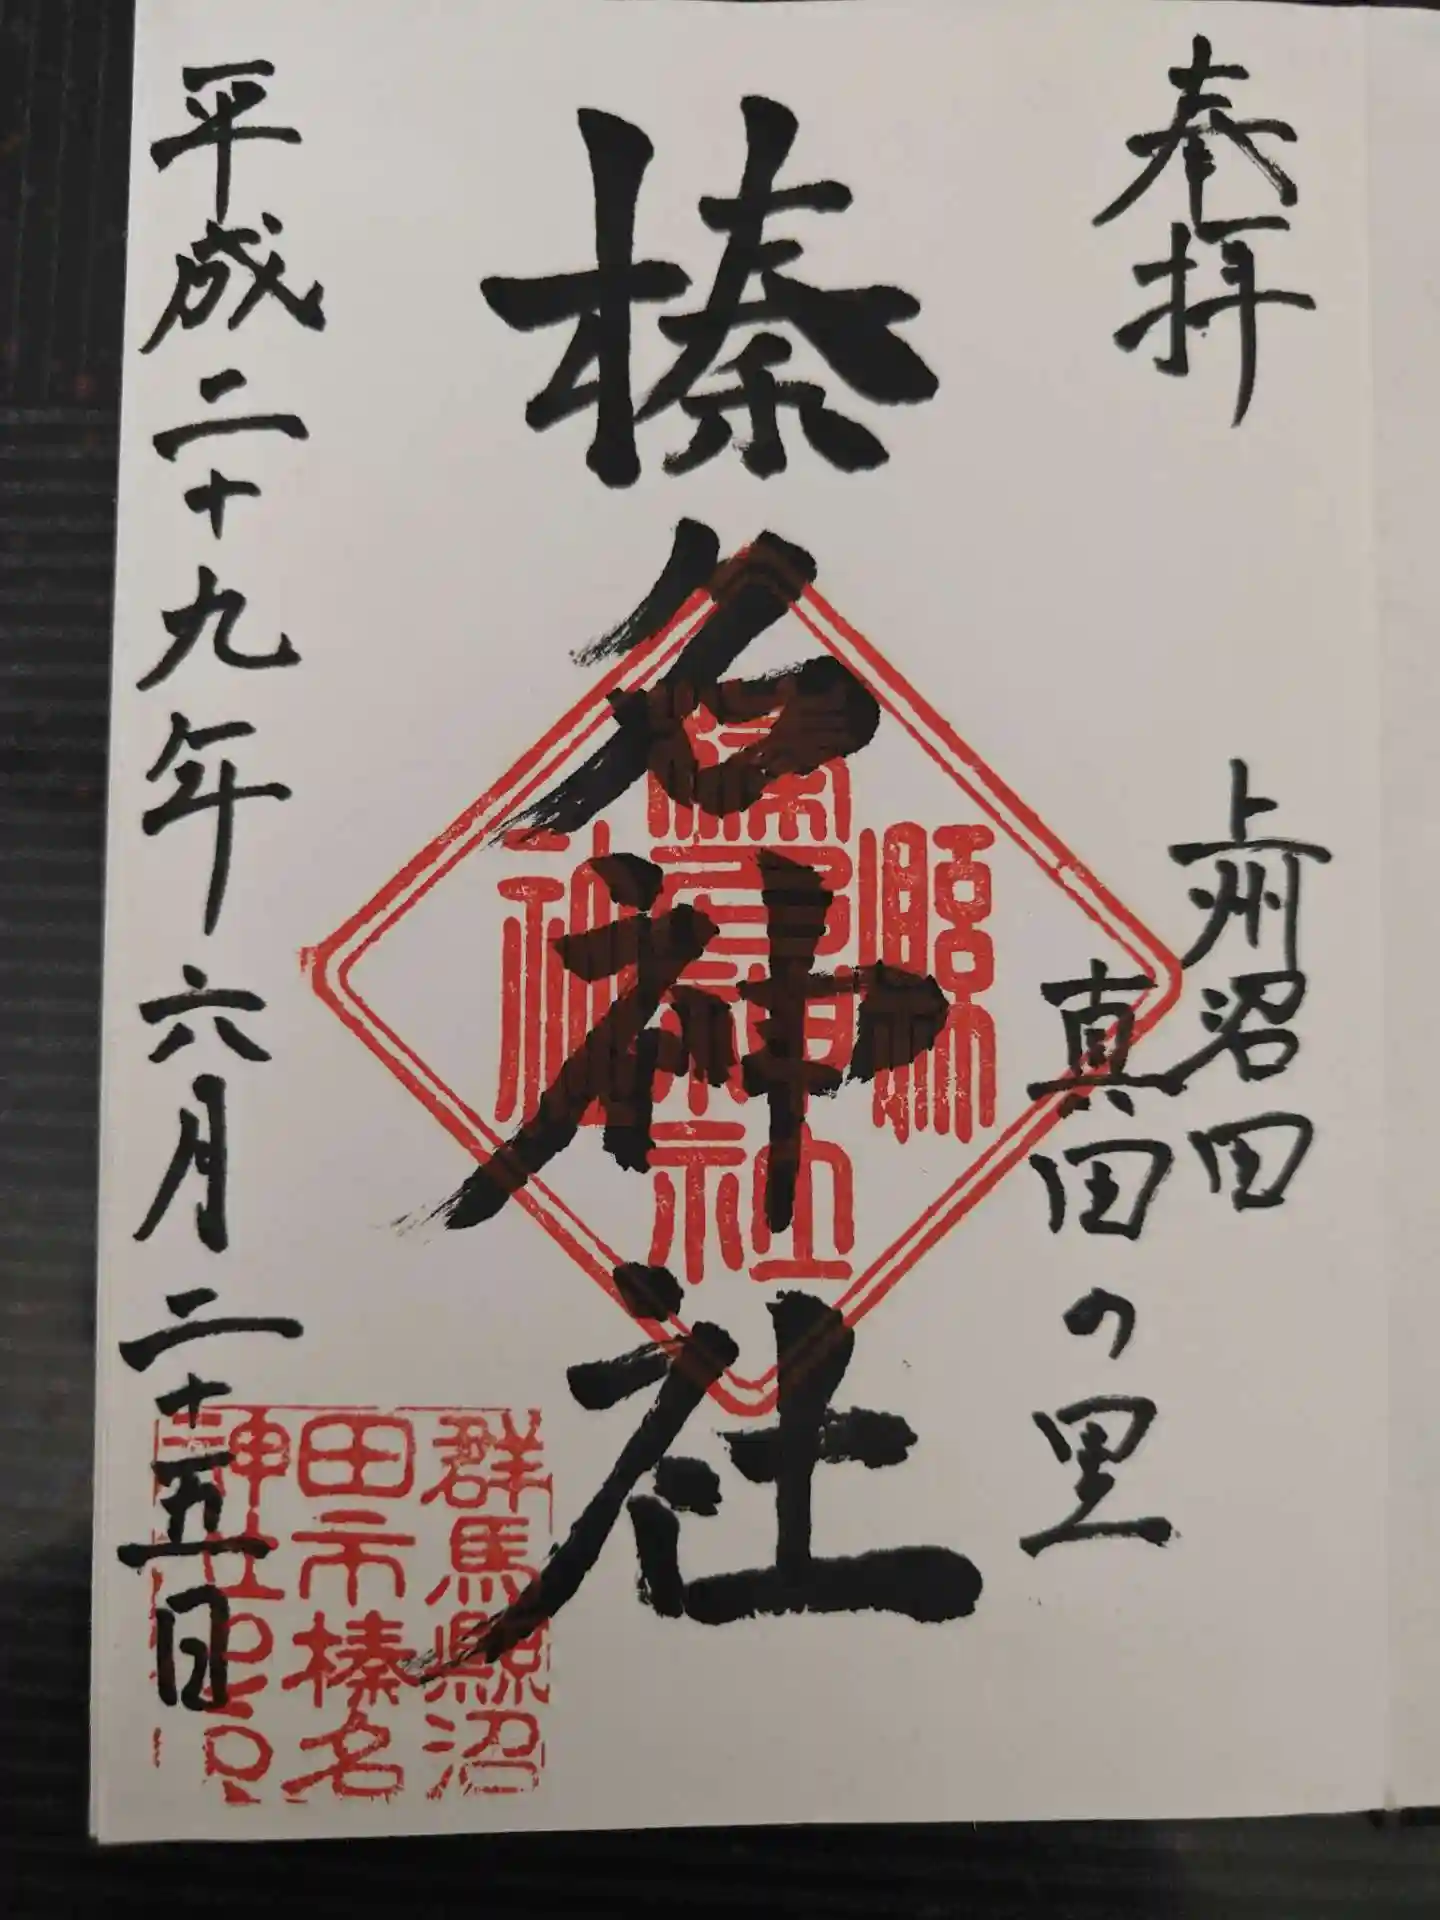 奉拝
上州沼田
真田の里
榛名神社
縣社
榛名神社
平成二十九年六月二十五日
群馬縣沼
田市榛名
神社